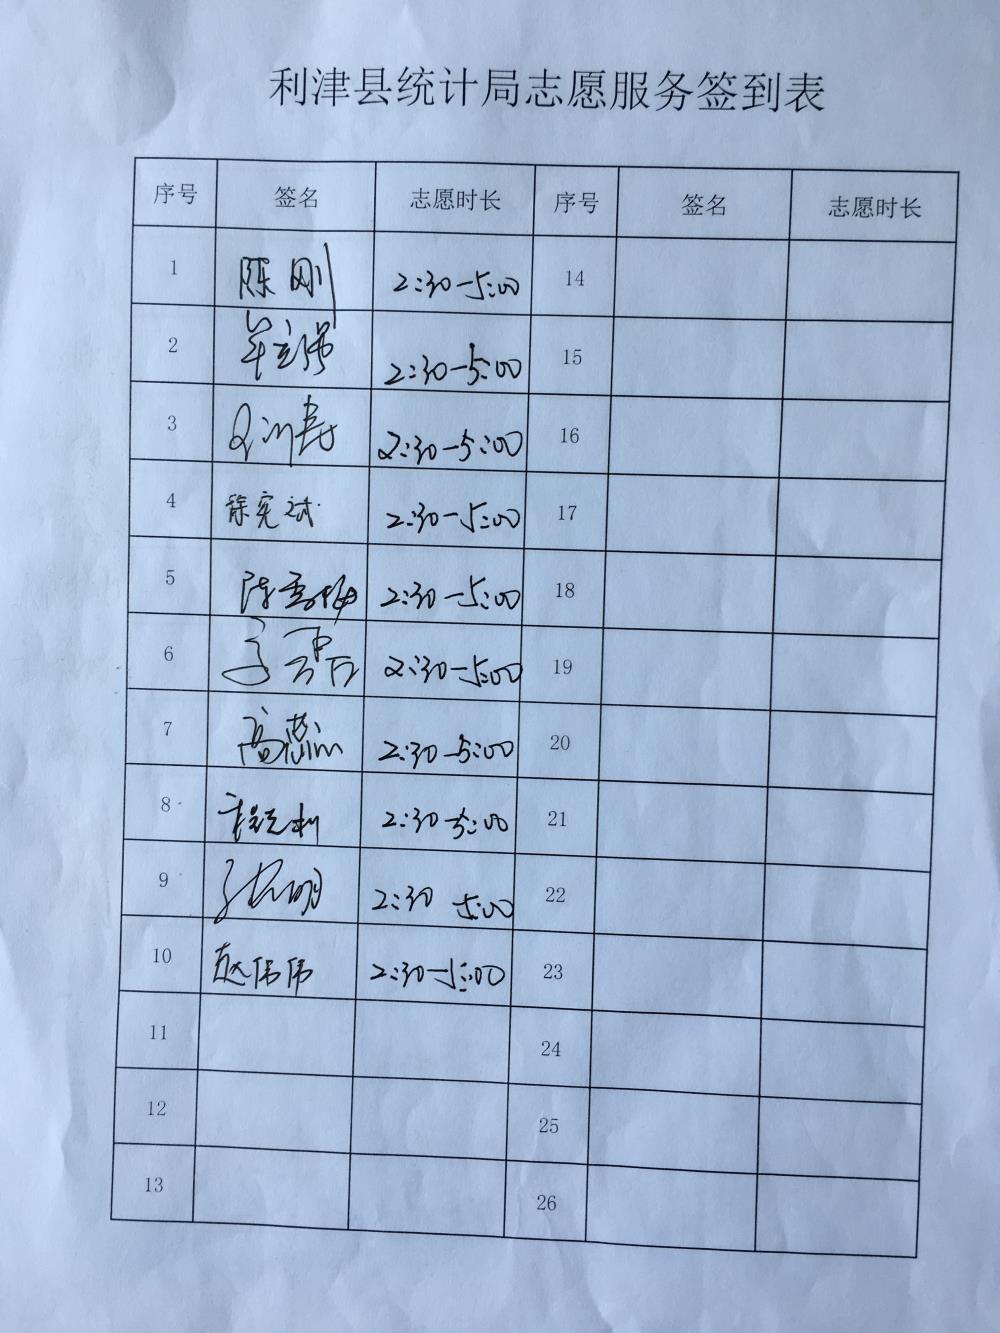 利津县统计局志愿服务签到表
序号 签名 志愿时长 序号 签名 志愿时长
1 陈刚 2:30-5:00 14
2 2:30-5:00 15
3 2:30-5:00 16
4 徐宪斌 2:30-5:00 17
5 陈秀梅 2:30-5:00 18
6 2:30-5:00 19
7 高蕊 2:30-5:00 20
8 2:30-5:00 21
9 2:30 5:00 22
10 赵伟伟 2:30-5:00 23
11 24
12 25
13 26